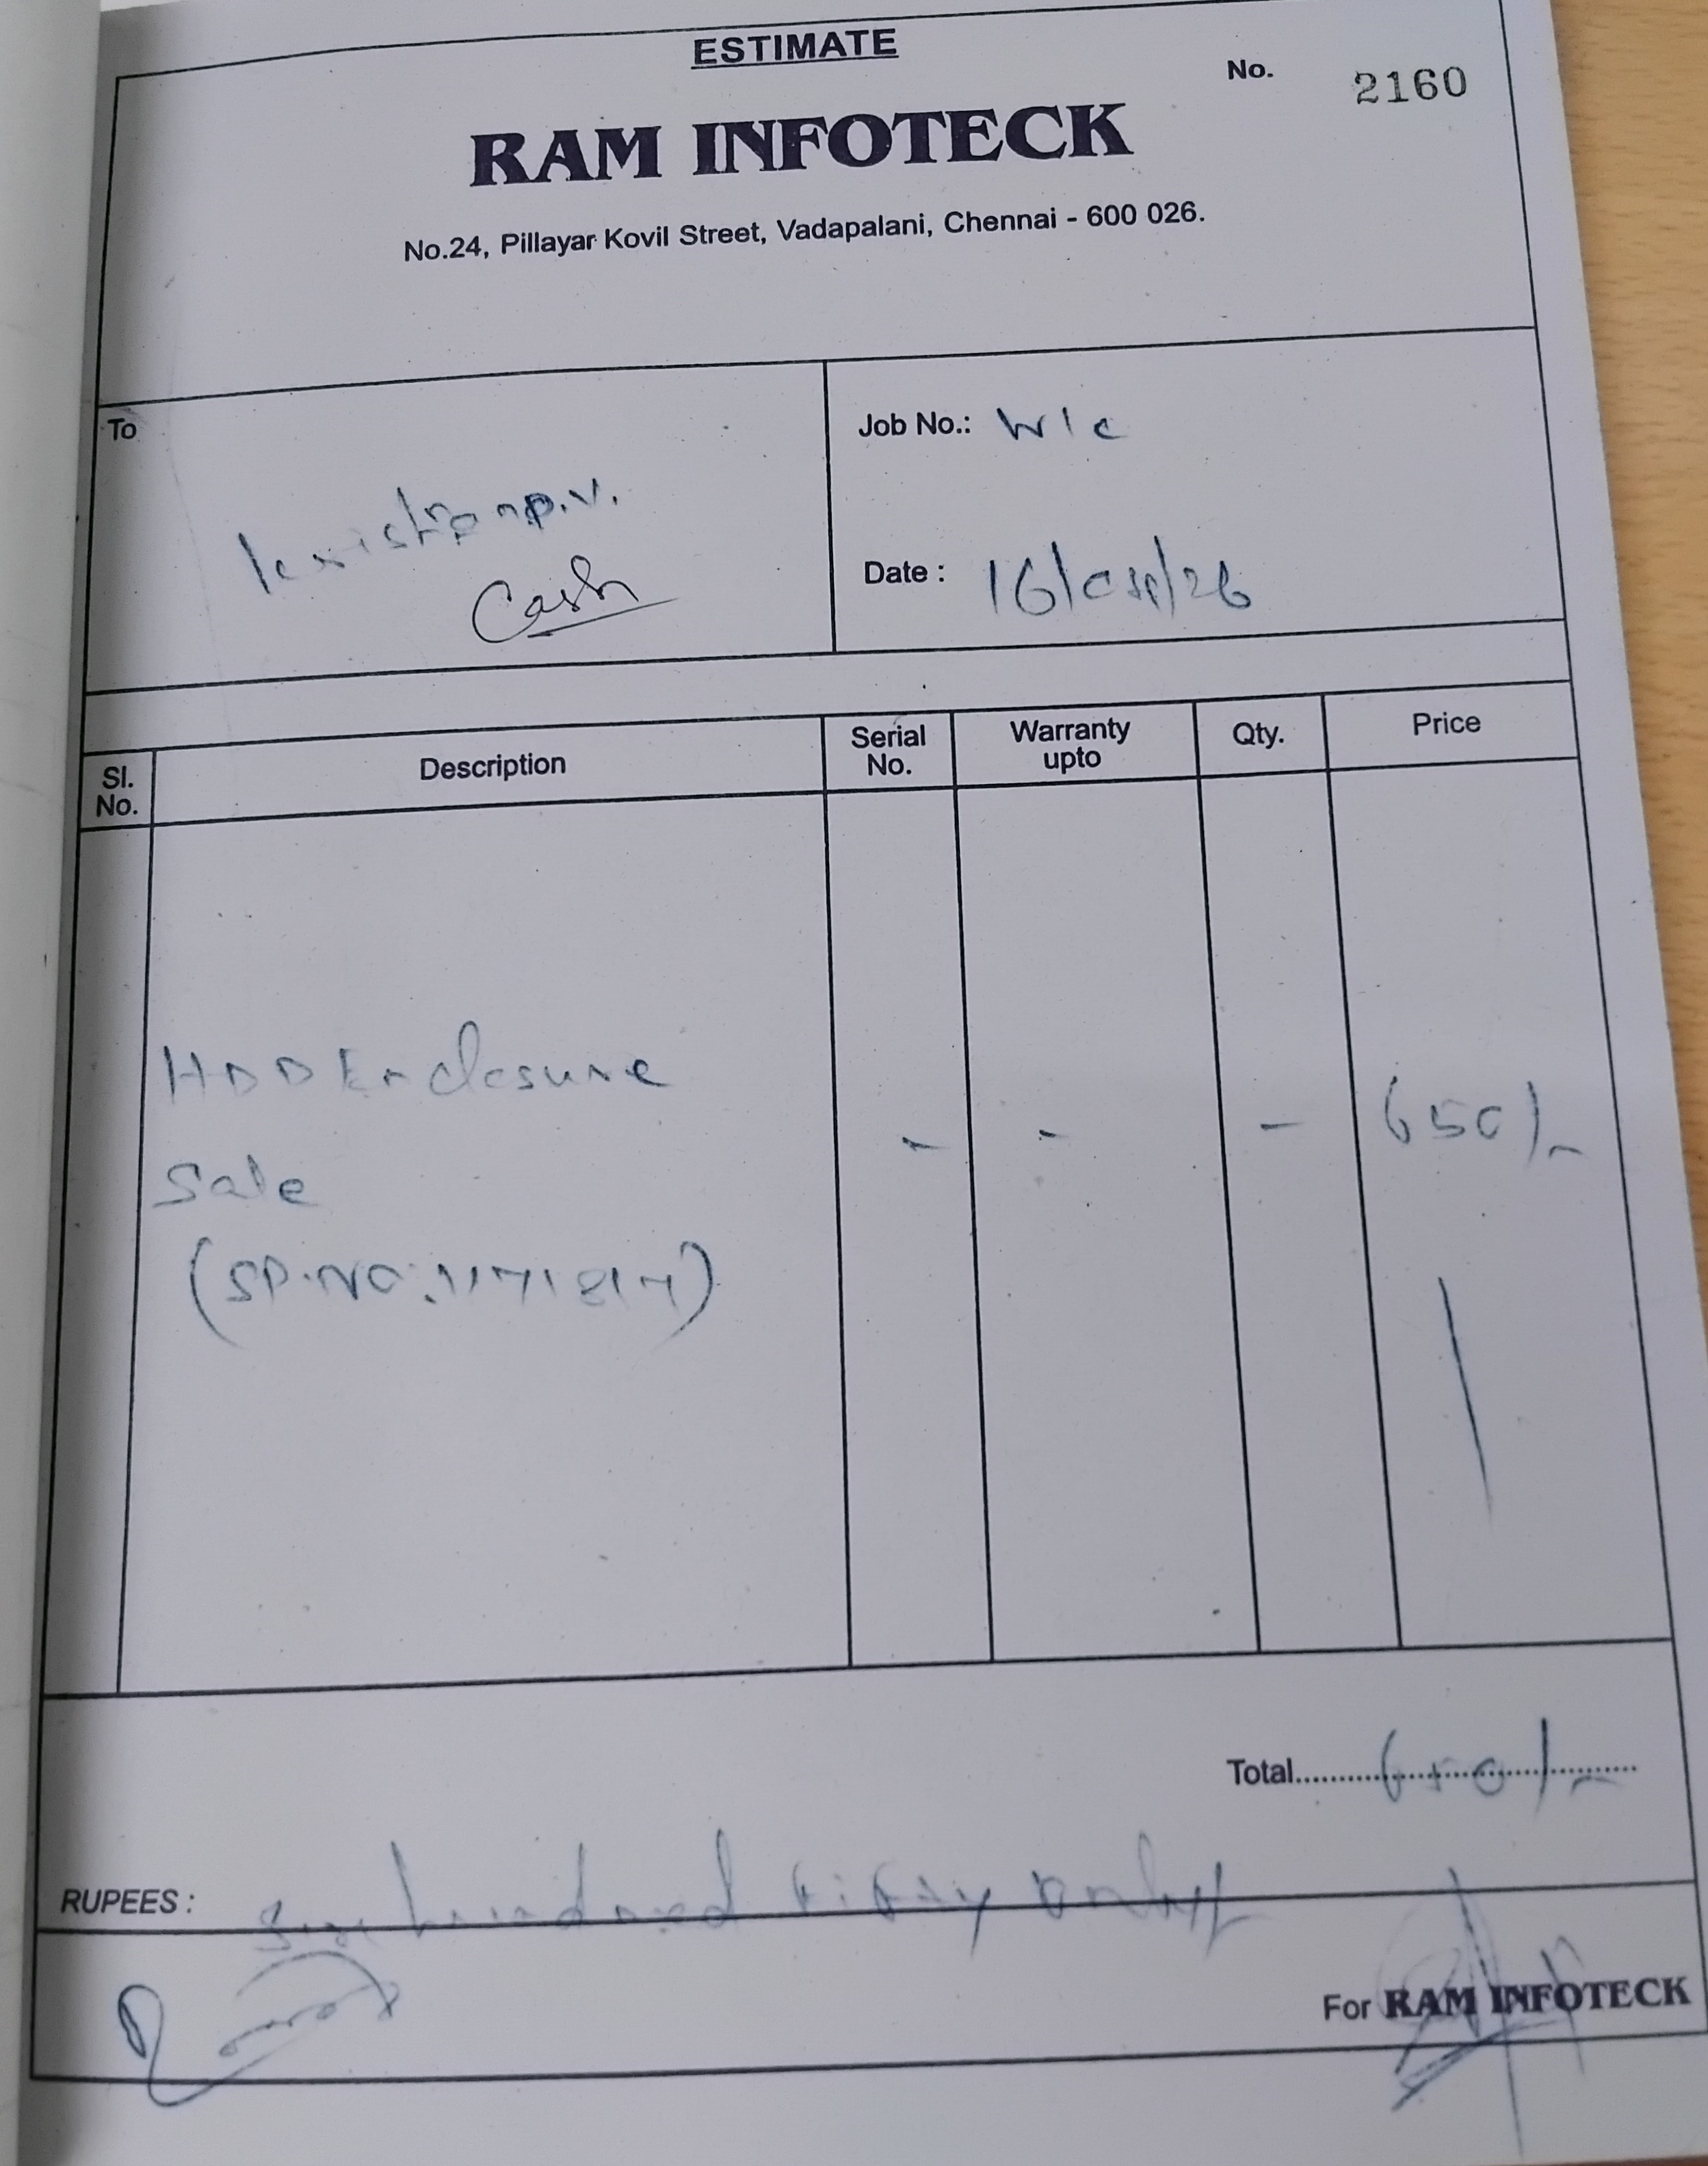 ESTIMATE
No. 2160
RAM INFOTECK
No.24, Pillayar Kovil Street, Vadapalani, Chennai - 600 026.
To
p.v.
Cash
Job No.: W/c
Date : 16/04/26
Sl. No. Description Serial No. Warranty upto Qty. Price
HDD Enclosure - - - 650/-
Sale
(SP.NO:1171817)
Total 650/-
RUPEES : Six hundred fifty only
For RAM INFOTECK